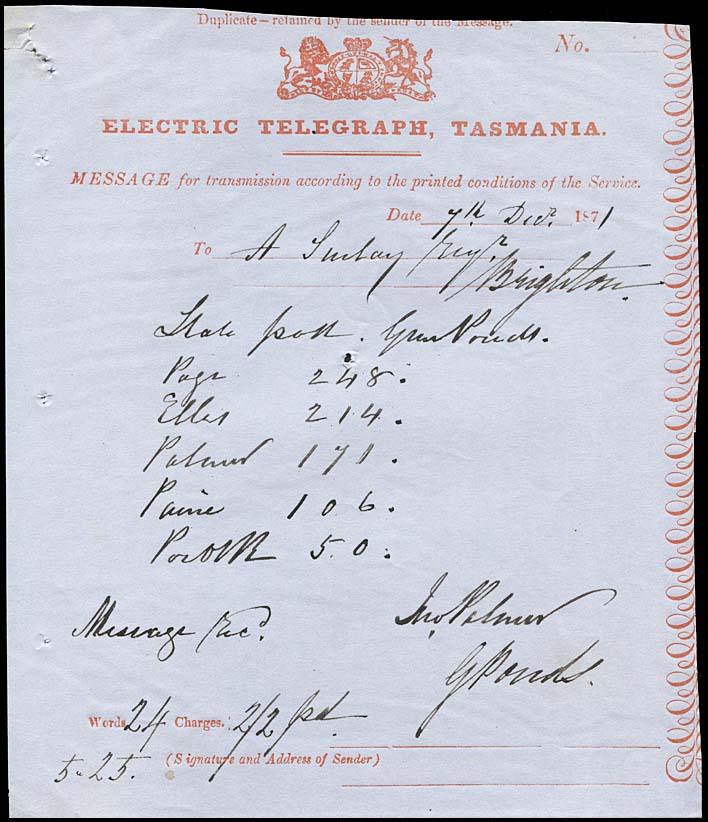 Duplicate – retained by the sender of the Message.
No.
ELECTRIC TELEGRAPH, TASMANIA.
MESSAGE for transmission according to the printed conditions of the Service.
Date 7th Decr. 1871
To A Esqr.
Brighton
State poll. Green Ponds.
Page 248.
Ellis 214.
Palmer 171.
Paine 106.
50.
Message Recd.
Jno. Palmer
G Ponds.
Words 24 Charges. 2/2 pd.
5.25. (Signature and Address of Sender)